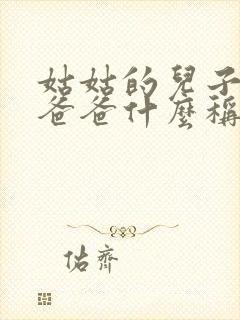 姑姑的兒子
爸爸什麼稱
佑齊